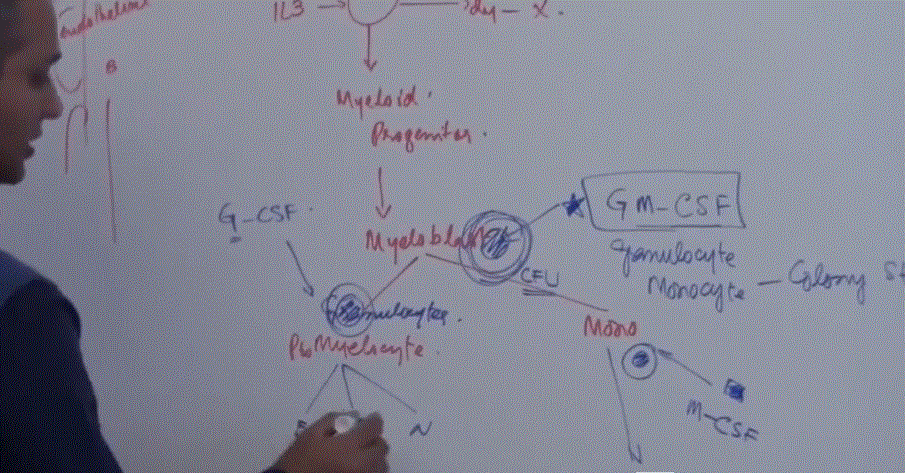 Endothelium
IL3
X.
B
Myeloid
Progenitor.
G-CSF
GM-CSF
Myeloblast
Granulocyte
Monocyte — Colony St
CFU
Granulocytes.
Mono
Pro Myelocyte.
M-CSF
N